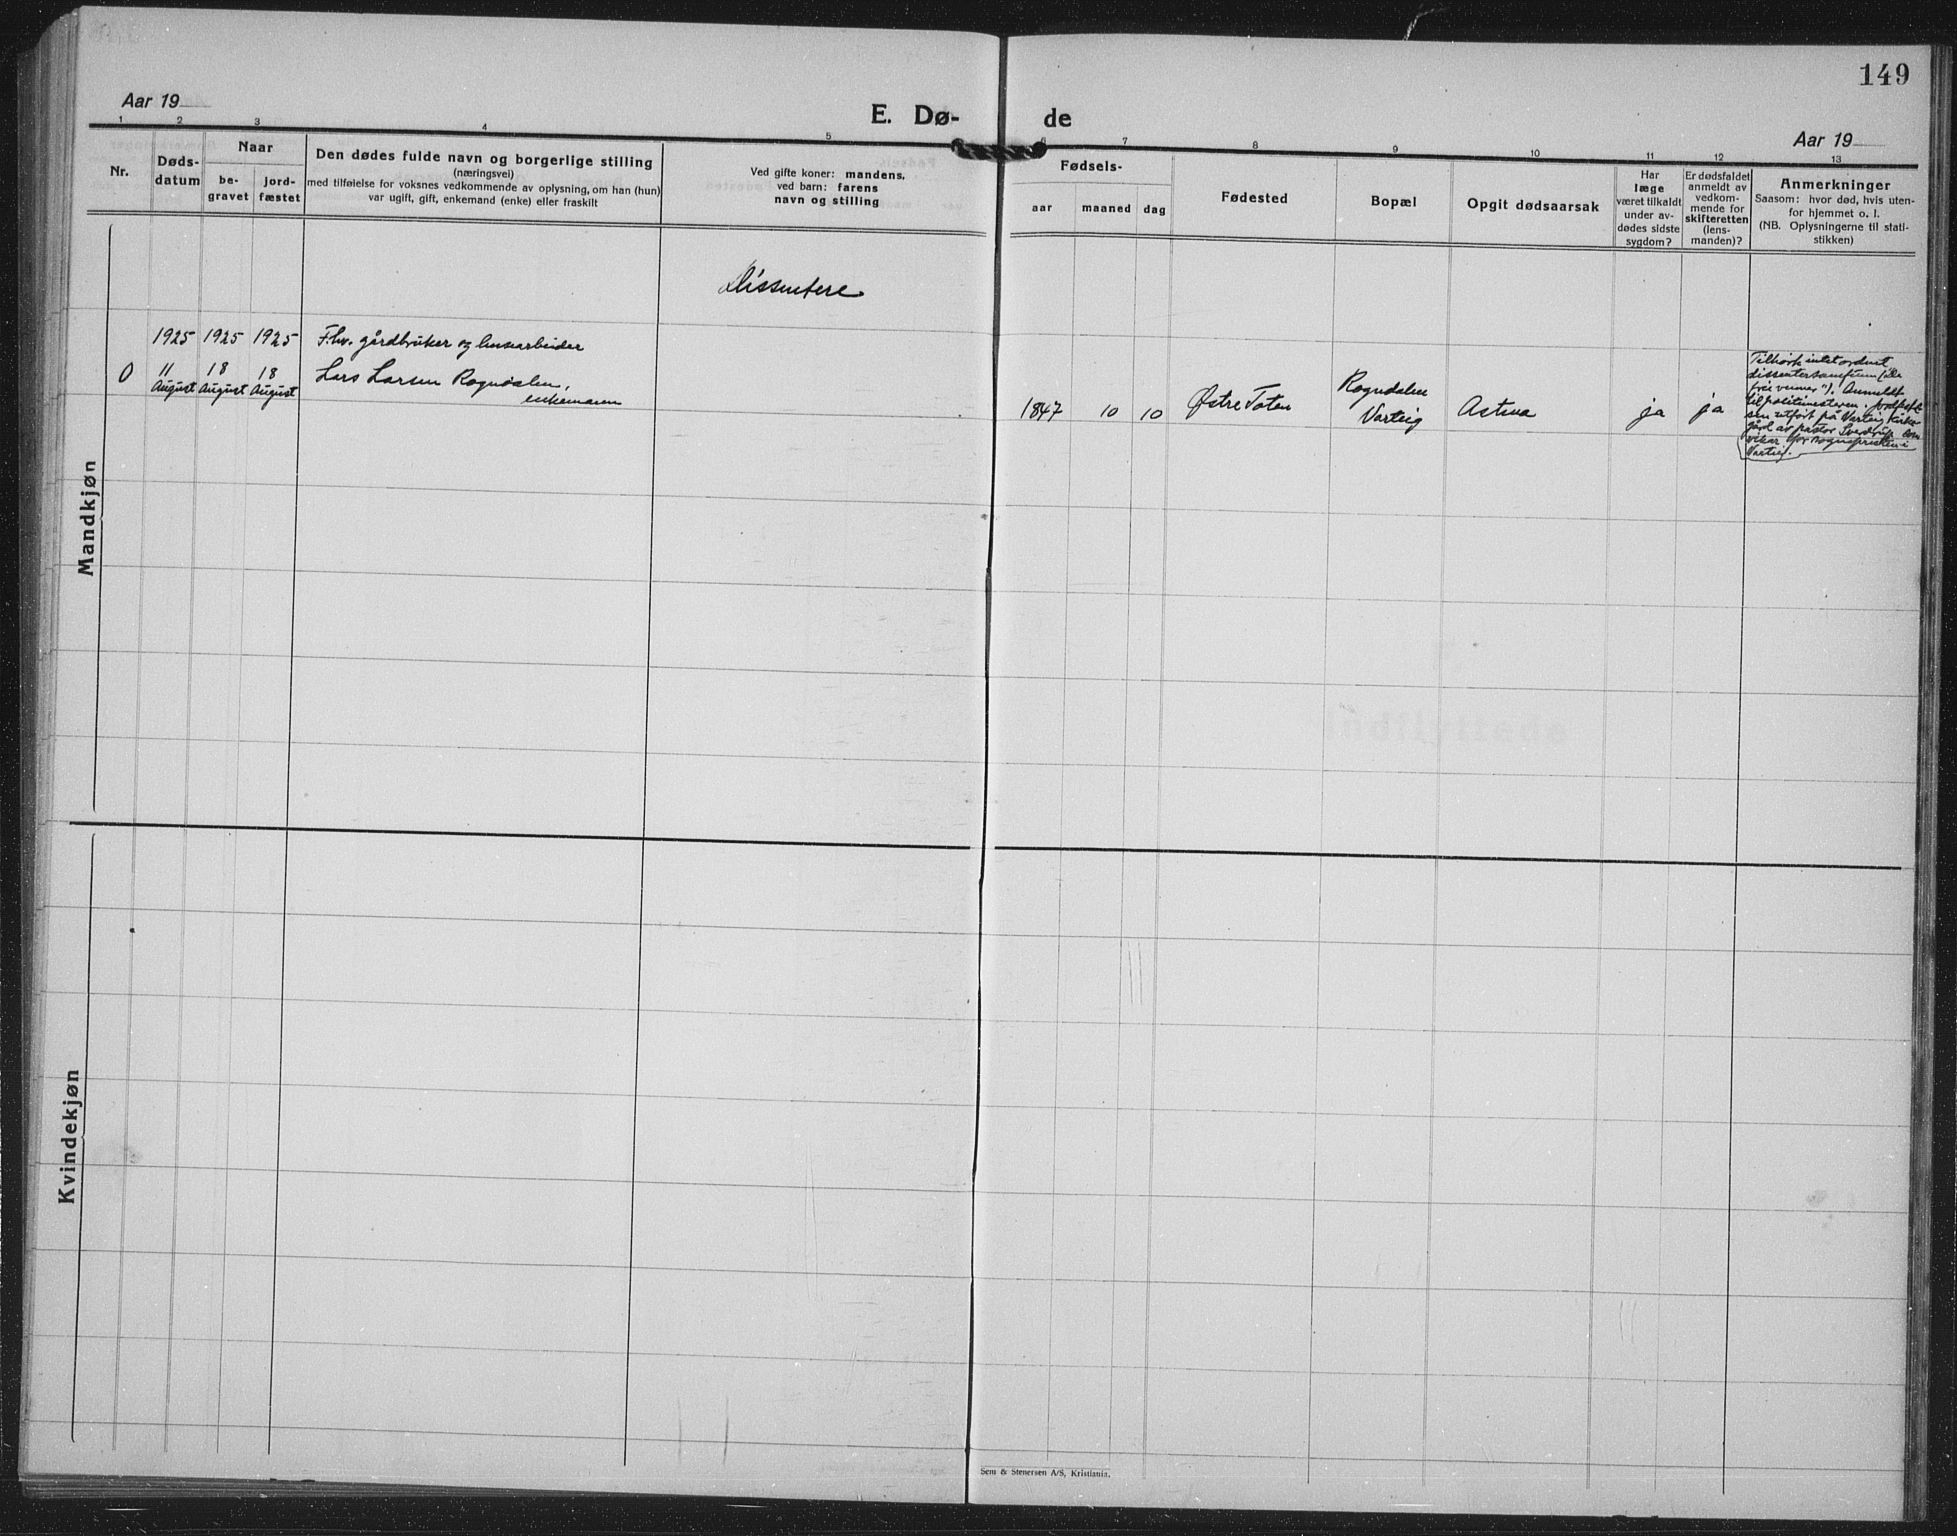 149
Aar 19
E. Dø- de
Aar 19
1 2 3 4 5 6 7 8 9 10 11 12 13
Nr.
Døds-
datum
Naar
be-
gravet
jord-
fæstet
Den dødes fulde navn og borgerlige stilling
(næringsvei)
med tilføielse for voksnes vedkommende av oplysning, om han (hun)
var ugift, gift, enkemand (enke) eller fraskilt
Ved gifte koner: mandens,
ved barn: farens
navn og stilling
Fødsels-
aar maaned dag
Fødested
Bopæl
Opgit dødsaarsak
Har
læge
været tilkaldt
under av-
dødes sidste
sygdom?
Er dødsfaldet
anmeldt av
vedkom-
mende for
skifteretten
(lens-
manden)?
Anmerkninger
Saasom: hvor død, hvis uten-
for hjemmet o. l.
(NB. Oplysningerne til stati-
stikken)
Mandkjøn
Dissentere
1925 1925 1925 F.hv. gårdbruker og
0 11 August 18 August 18 August Lars Larsen Rogndalen,
enkemann
1847 10 10 Østre Toten
Rogndalen
Varteig
Astma ja ja
Tilhørte intet ordnet
dissentersamfunn ("De
frie venner"). Anmeldt
til politimesteren. Jordfestel-
sen utført på Varteig kirke-
gård av pastor Sverdrup som
vikar for sognepresten i
Varteig.
Kvindekjøn
Sem & Stenersen A/S, Kristiania.